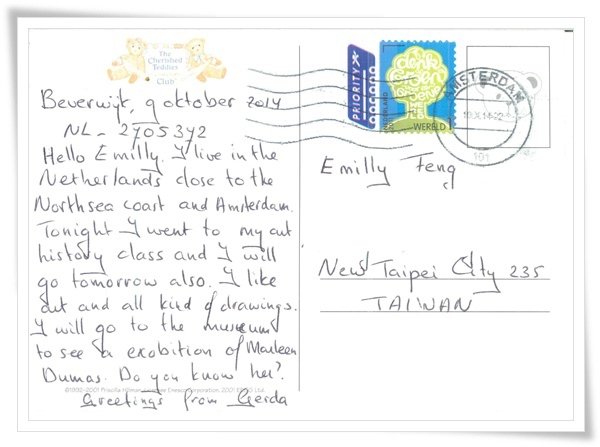 The
Cherished
Teddies
Club
Beverwijk, 9 oktober 2014
NL-2705392
Hello Emilly. I live in the
Netherlands close to the
Northsea coast and Amsterdam.
Tonight I went to my art
history class and I will
go tomorrow also. I like
art and all kind of drawings.
I will go to the museum
to see a exobition of Marleen
Dumas. Do you know her?
Greetings from Gerda
PRIORITY
NEDERLAND
WERELD 1
AMSTERDAM
101
Emilly Feng
New Taipei City 235
TAIWAN